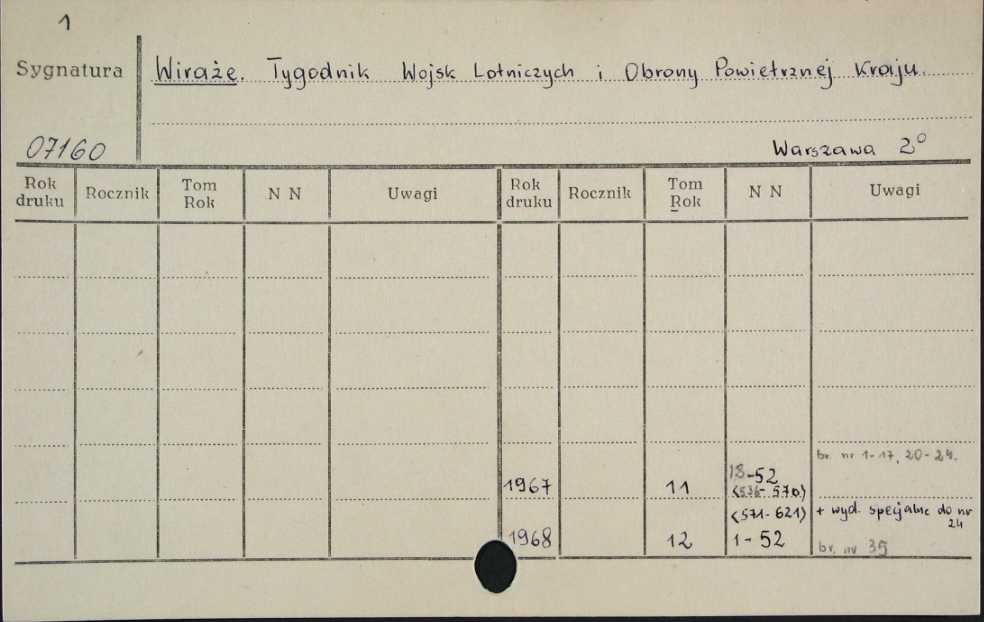 1
Sygnatura
Wiraże. Tygodnik Wojsk Lotniczych i Obrony Powietrznej Kraju.
07160
Warszawa 2°
Rok druku Rocznik Tom Rok N N Uwagi Rok druku Rocznik Tom Rok N N Uwagi
br. nr 1-17, 20-24.
1967 11 18-52
(536-570)
(571-621) + wyd. specjalne do nr 24
1968 12 1-52 br. nr 35